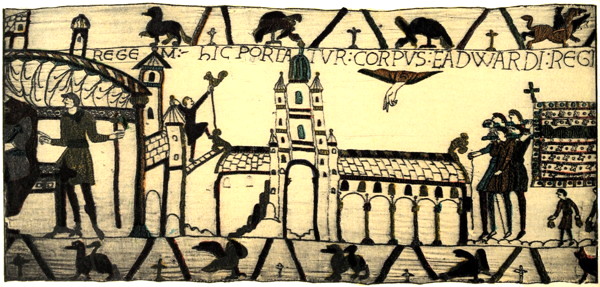 REGEM:- hIC PORTATVR: CORPVS: EADWARDI: REGI